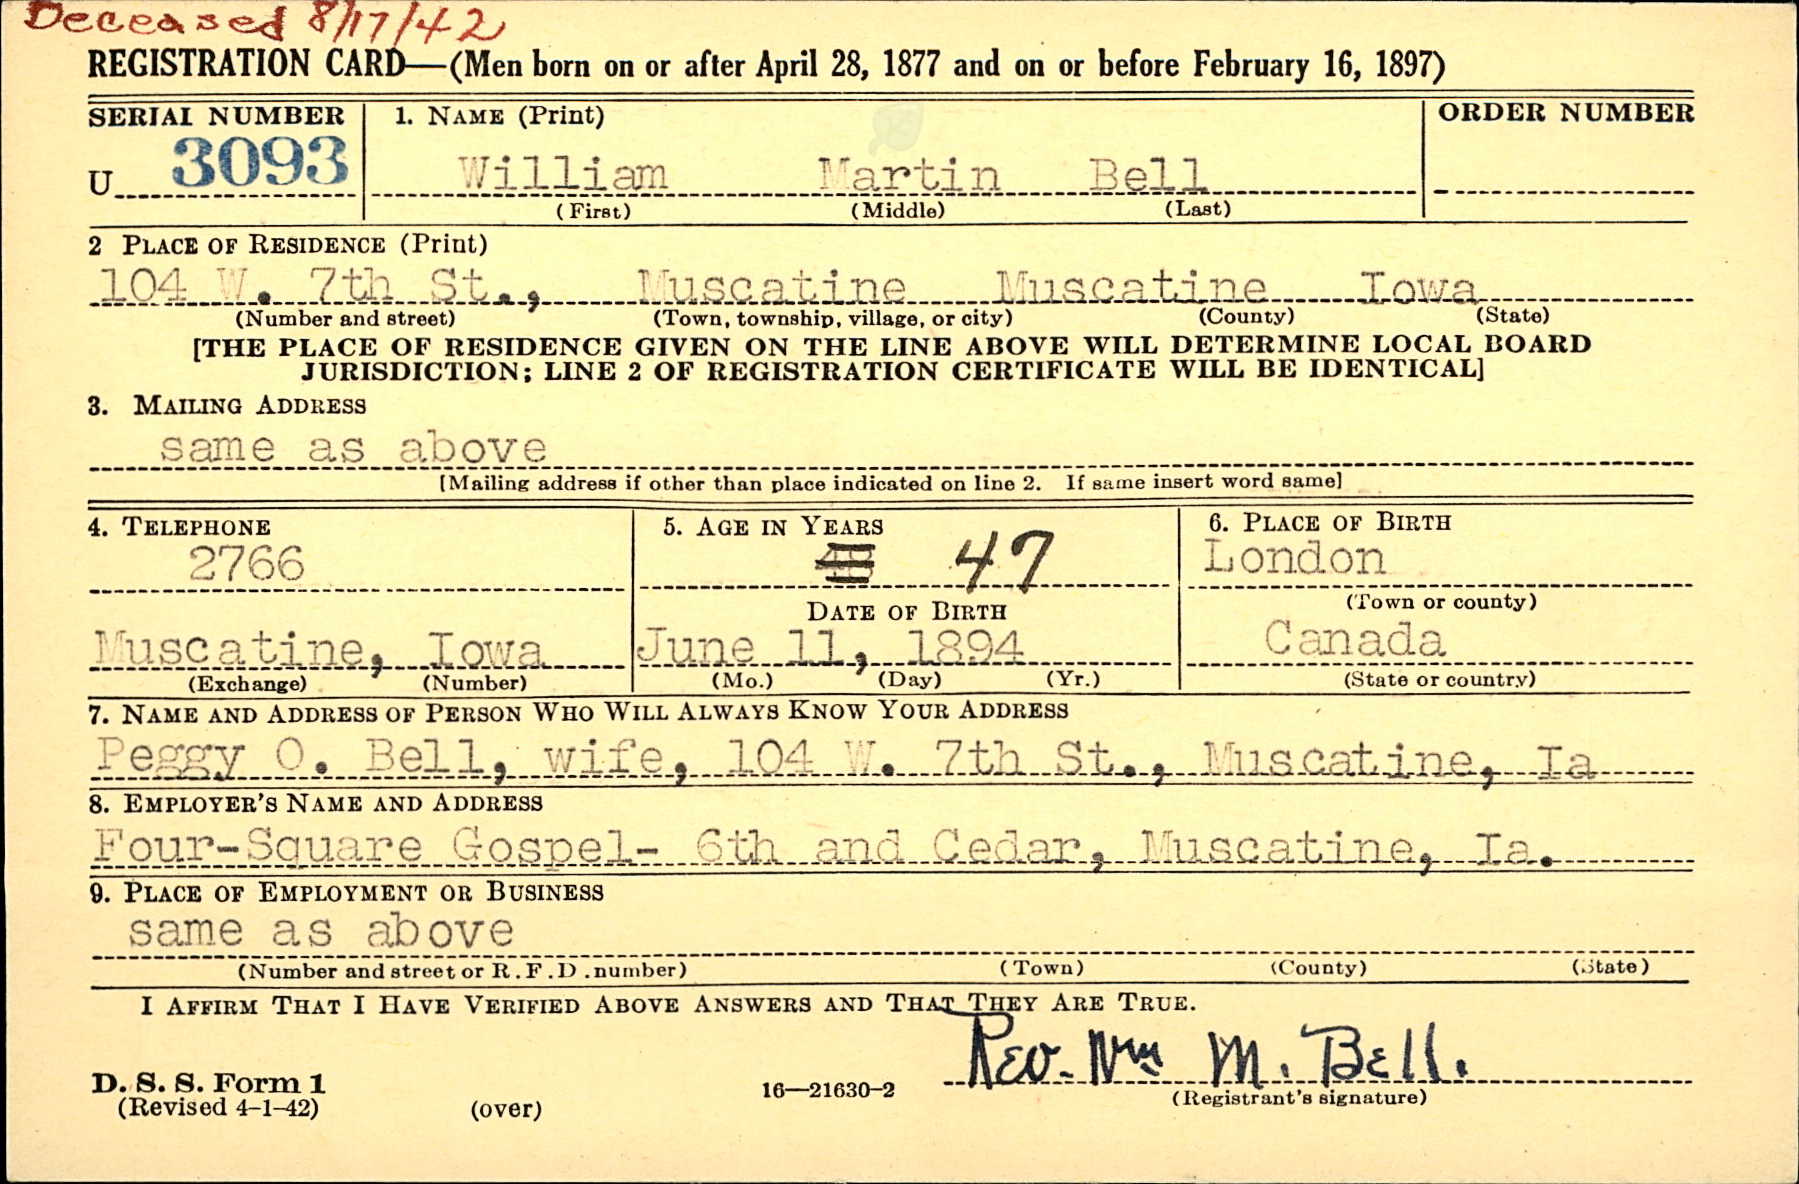 Deceased 8/17/42
REGISTRATION CARD—(Men born on or after April 28, 1877 and on or before February 16, 1897)
SERIAL NUMBER 1. NAME (Print) ORDER NUMBER
U 3093 William Martin Bell
(First) (Middle) (Last)
2 PLACE OF RESIDENCE (Print)
104 W. 7th St., Muscatine Muscatine Iowa
(Number and street) (Town, township, village, or city) (County) (State)
[THE PLACE OF RESIDENCE GIVEN ON THE LINE ABOVE WILL DETERMINE LOCAL BOARD
JURISDICTION; LINE 2 OF REGISTRATION CERTIFICATE WILL BE IDENTICAL]
3. MAILING ADDRESS
same as above
[Mailing address if other than place indicated on line 2. If same insert word same]
4. TELEPHONE 5. AGE IN YEARS 6. PLACE OF BIRTH
2766 48 47 London
DATE OF BIRTH (Town or county)
Muscatine, Iowa June 11, 1894 Canada
(Exchange) (Number) (Mo.) (Day) (Yr.) (State or country)
7. NAME AND ADDRESS OF PERSON WHO WILL ALWAYS KNOW YOUR ADDRESS
Peggy O. Bell, wife, 104 W. 7th St., Muscatine, Ia
8. EMPLOYER'S NAME AND ADDRESS
Four-Square Gospel- 6th and Cedar, Muscatine, Ia.
9. PLACE OF EMPLOYMENT OR BUSINESS
same as above
(Number and street or R.F.D. number) (Town) (County) (State)
I AFFIRM THAT I HAVE VERIFIED ABOVE ANSWERS AND THAT THEY ARE TRUE.
Rev. Wm M. Bell.
D. S. S. Form 1 16—21630-2 (Registrant's signature)
(Revised 4-1-42) (over)